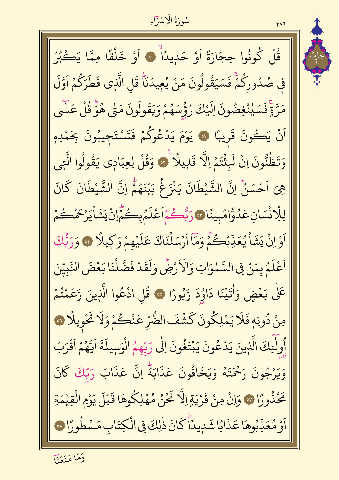 سُورَةُ الْاِسْرَاءِ
٢٨٦
قُلْ كُونُوا حِجَارَةً اَوْ حَدِيدًا ۝ اَوْ خَلْقًا مِمَّا يَكْبُرُ
فِى صُدُورِكُمْ فَسَيَقُولُونَ مَنْ يُعِيدُنَا قُلِ الَّذِى فَطَرَكُمْ اَوَّلَ
مَرَّةٍ فَسَيُنْغِضُونَ اِلَيْكَ رُؤُسَهُمْ وَيَقُولُونَ مَتٰى هُوَ قُلْ عَسٰٓى
اَنْ يَكُونَ قَرِيبًا ۝ يَوْمَ يَدْعُوكُمْ فَتَسْتَجِيبُونَ بِحَمْدِهِ
وَتَظُنُّونَ اِنْ لَبِثْتُمْ اِلَّا قَلِيلًا ۝ وَقُلْ لِعِبَادِى يَقُولُوا الَّتِى
هِىَ اَحْسَنُ اِنَّ الشَّيْطَانَ يَنْزَغُ بَيْنَهُمْ اِنَّ الشَّيْطَانَ كَانَ
لِلْاِنْسَانِ عَدُوًّا مُبِينًا ۝ رَبُّكُمْ اَعْلَمُ بِكُمْ اِنْ يَشَاْ يَرْحَمْكُمْ
اَوْ اِنْ يَشَاْ يُعَذِّبْكُمْ وَمَٓا اَرْسَلْنَاكَ عَلَيْهِمْ وَكِيلًا ۝ وَرَبُّكَ
اَعْلَمُ بِمَنْ فِى السَّمٰوَاتِ وَالْاَرْضِ وَلَقَدْ فَضَّلْنَا بَعْضَ النَّبِيّٖنَ
عَلٰى بَعْضٍ وَاٰتَيْنَا دَاوُدَ زَبُورًا ۝ قُلِ ادْعُوا الَّذِينَ زَعَمْتُمْ
مِنْ دُونِهِ فَلَا يَمْلِكُونَ كَشْفَ الضُّرِّ عَنْكُمْ وَلَا تَحْوِيلًا ۝
اُولٰٓئِكَ الَّذِينَ يَدْعُونَ يَبْتَغُونَ اِلٰى رَبِّهِمُ الْوَسِيلَةَ اَيُّهُمْ اَقْرَبُ
وَيَرْجُونَ رَحْمَتَهُ وَيَخَافُونَ عَذَابَهُ اِنَّ عَذَابَ رَبِّكَ كَانَ
مَحْذُورًا ۝ وَاِنْ مِنْ قَرْيَةٍ اِلَّا نَحْنُ مُهْلِكُوهَا قَبْلَ يَوْمِ الْقِيٰمَةِ
اَوْ مُعَذِّبُوهَا عَذَابًا شَدِيدًا كَانَ ذٰلِكَ فِى الْكِتَابِ مَسْطُورًا ۝
وَمَا مَنَعَنَا